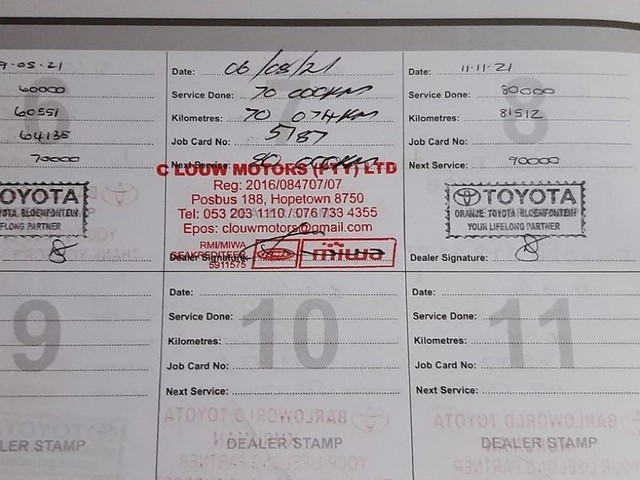 9-05-21
60000
60551
64135
70000
TOYOTA
TOYOTA BLOEMFONTEIN
LIFELONG PARTNER
Date: 06/08/21
Service Done: 70 000KM
Kilometres: 70 074KM
Job Card No: 5187
Next Service: 80 000KM
C LOUW MOTORS (PTY) LTD
Reg: 2016/084707/07
Posbus 188, Hopetown 8750
Tel: 053 203 1110 / 076 733 4355
Epos: clouwmotors@gmail.com
RMI/MIWA
GEAKREDITEER
5911575
miwa
Dealer Signature:
8
Date: 11-11-21
Service Done: 80000
Kilometres: 81512
Job Card No:
Next Service: 90000
TOYOTA
ORANJE TOYOTA BLOEMFONTEIN
YOUR LIFELONG PARTNER
Dealer Signature:
9
LER STAMP
10
Date:
Service Done:
Kilometres:
Job Card No:
Next Service:
DEALER STAMP
11
Date:
Service Done:
Kilometres:
Job Card No:
Next Service:
DEALER STAMP